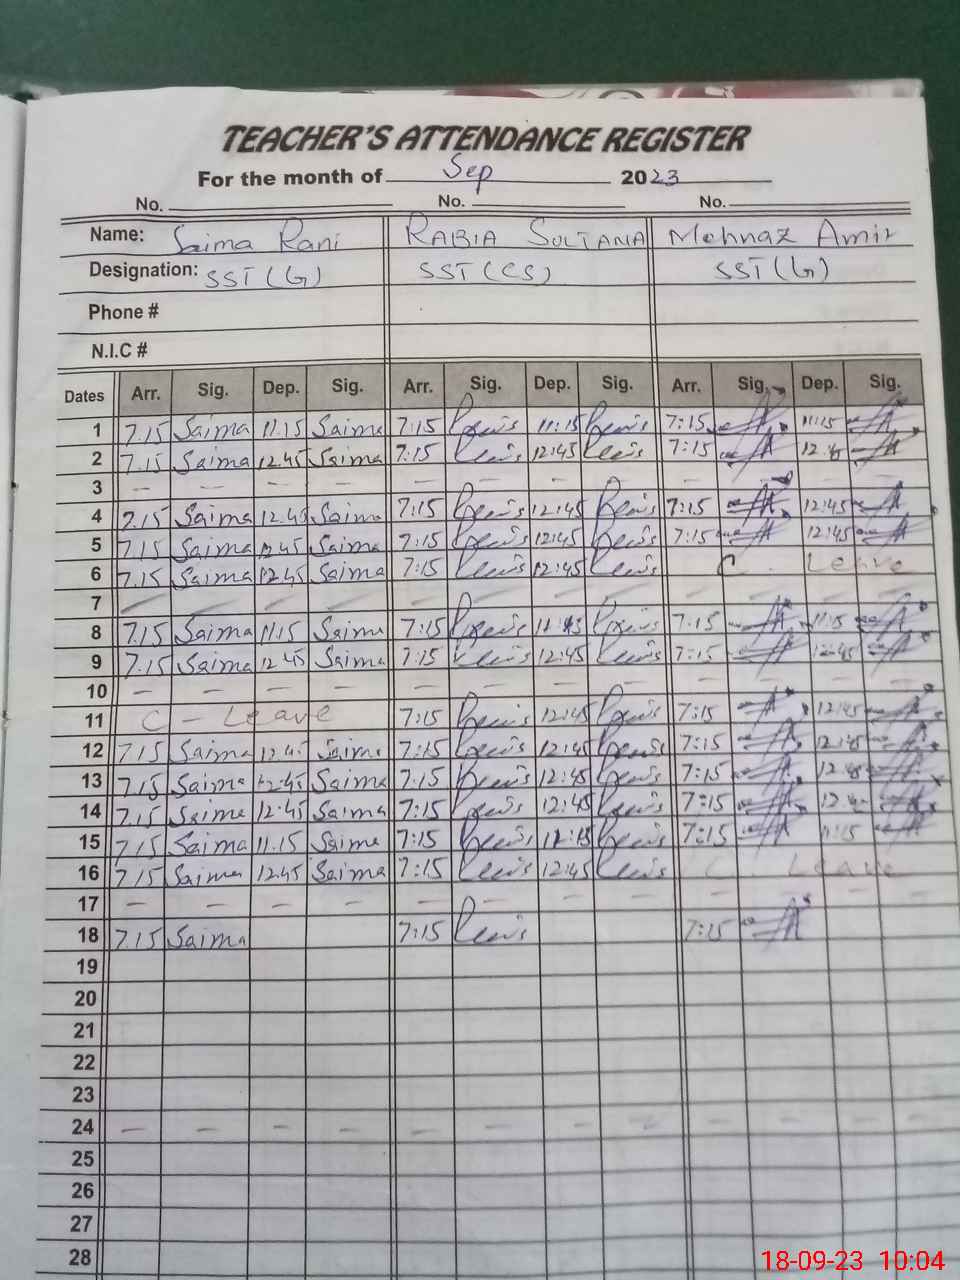 TEACHER'S ATTENDANCE REGISTER
For the month of Sep 2023
No. No. No.
Name: Saima Rani RABIA SULTANA Mehnaz Amir
Designation: SST (G) SST (CS) SST (G)
Phone #
N.I.C #
Dates Arr. Sig. Dep. Sig. Arr. Sig. Dep. Sig. Arr. Sig. Dep. Sig.
1 7.15 Saima 11.15 Saima 7:15 11:15 7:15 11:15
2 7.15 Saima 12.45 Saima 7:15 12:45 7:15 12:45
3 — — — — — — — — — — — —
4 7.15 Saima 12.45 Saima 7:15 12:45 7:15 12:45
5 7.15 Saima 12.45 Saima 7:15 12:45 7:15 12:45
6 7.15 Saima 12.45 Saima 7:15 12:45 C. Leave
7 — — — — — — — — — — — —
8 7.15 Saima 11.15 Saima 7:15 11:15 7:15 11:15
9 7.15 Saima 12.45 Saima 7:15 12:45 7:15 12:45
10 — — — — — — — — — — — —
11 C - Leave 7:15 12:45 7:15 12:45
12 7.15 Saima 12.45 Saima 7:15 12:45 7:15 12:45
13 7.15 Saima 12.45 Saima 7:15 12:45 7:15 12:45
14 7.15 Saima 12.45 Saima 7:15 12:45 7:15
15 7.15 Saima 11.15 Saima 7:15 11:15 7:15 11:15
16 7.15 Saima 12.45 Saima 7:15 12:45 C. Leave
17 — — — — — — — — — — — —
18 7.15 Saima 7:15 7:15
19
20
21
22
23
24 — — — — — — — — — — — —
25
26
27
28
18-09-23 10:04